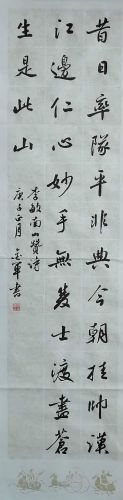 昔日率隊平非典今朝挂帥漢
江邊仁心妙手無雙士渡盡蒼
生是此山
李敏南山贊詩
庚子正月 金軍書